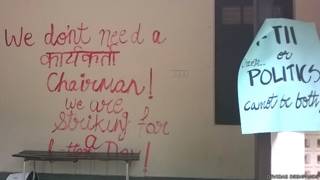 We don't need a
कार्यकर्ता
Chairman!
We are
striking for
a
Day!
FTII
or
POLITICS
cannot be both